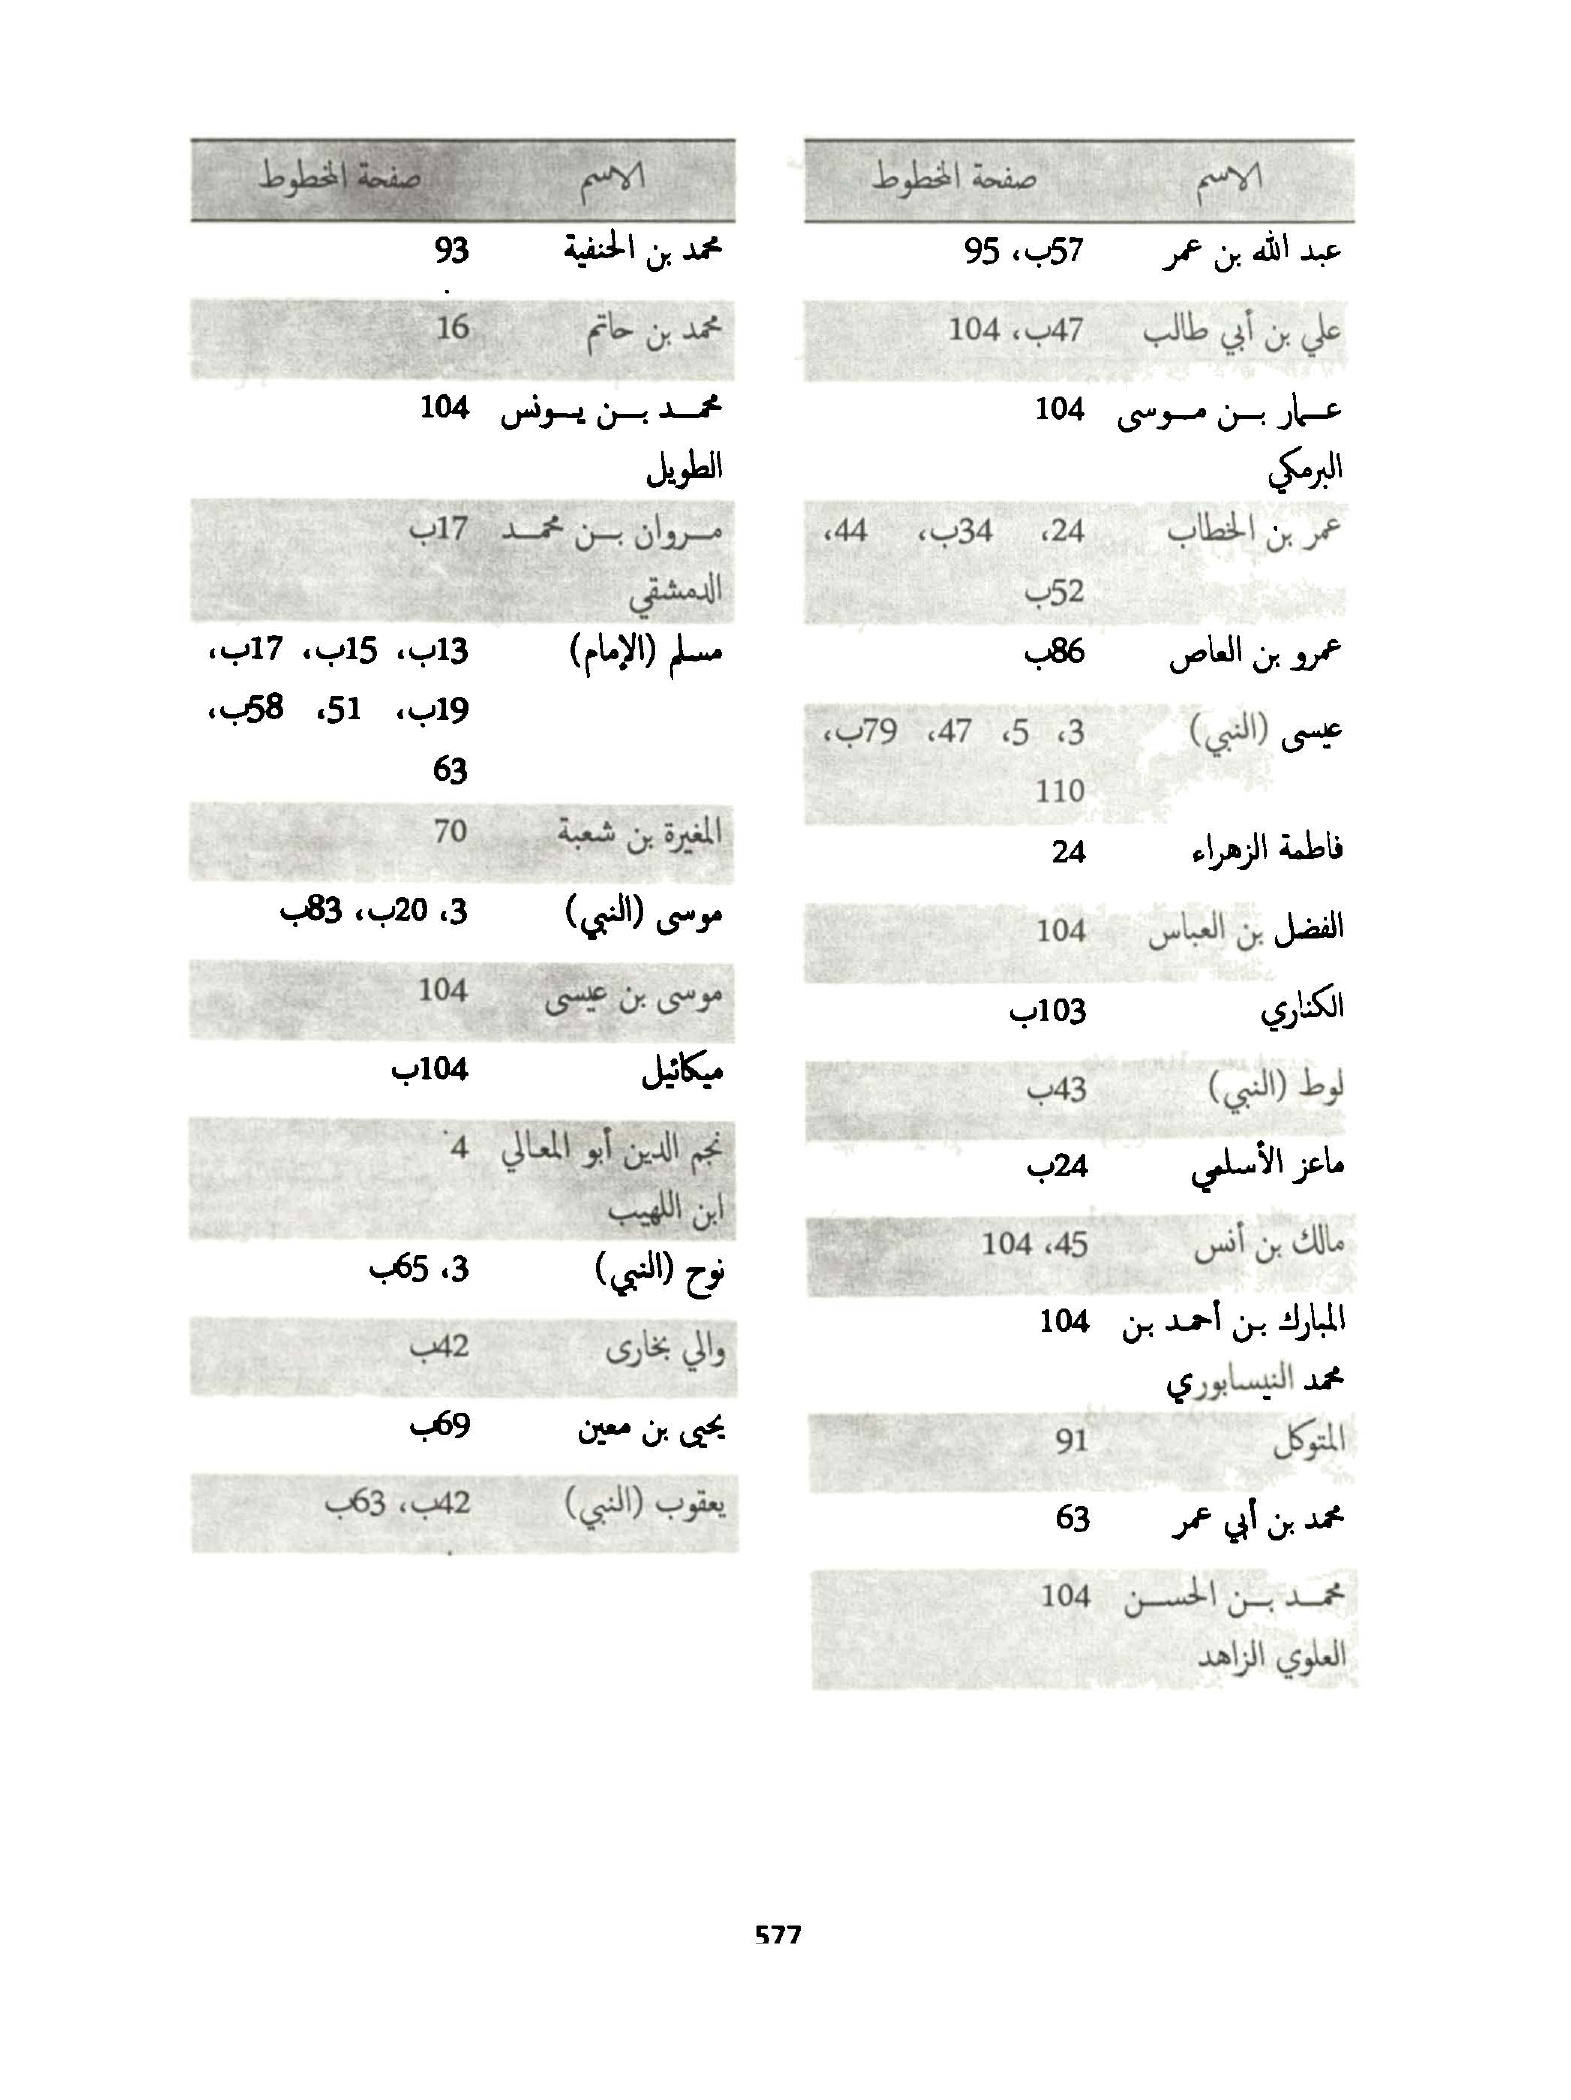 الاسم صفحة المخطوط
عبد الله بن عمر 57ب، 95
علي بن أبي طالب 47ب، 104
عمار بن موسى 104
البرمكي
عمر بن الخطاب 24، 34ب، 44،
52ب
عمرو بن العاص 86ب
عيسى (النبي) 3، 5، 47، 79ب،
110
فاطمة الزهراء 24
الفضل بن العباس 104
الكناري 103ب
لوط (النبي) 43ب
ماعز الأسلمي 24ب
مالك بن أنس 45، 104
المبارك بن أحمد بن 104
محمد النيسابوري
المتوكل 91
محمد بن أبي عمر 63
محمد بن الحسن 104
العلوي الزاهد
الاسم صفحة المخطوط
محمد بن الحنفية 93
محمد بن حاتم 16
محمد بن يونس 104
الطويل
مروان بن محمد 17ب
الدمشقي
مسلم (الإمام) 13ب، 15ب، 17ب،
19ب، 51، 58ب،
63
المغيرة بن شعبة 70
موسى (النبي) 3، 20ب، 83ب
موسى بن عيسى 104
ميكائيل 104ب
نجم الدين أبو المعالي 4
ابن اللهيب
نوح (النبي) 3، 65ب
والي بخارى 42ب
يحيى بن معين 69ب
يعقوب (النبي) 42ب، 63ب
577